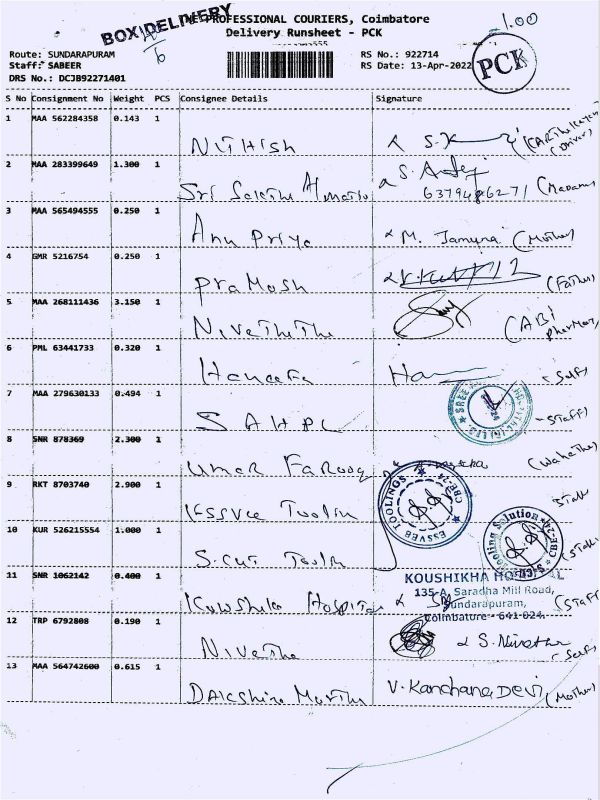 BOX DELIVERY
PROFESSIONAL COURIERS, Coimbatore
Delivery Runsheet - PCK
1.00
PCK
Route: SUNDARAPURAM
Staff: SABEER
DRS No.: DCJB92271401
RS No.: 922714
RS Date: 13-Apr-2022
S No Consignment No Weight PCS Consignee Details Signature
1 MAA 562284358 0.143 1
Nithish S.
(Driver)
2 MAA 283399649 1.300 1
Sri Sakthi S.
(Madam)
3 MAA 565494555 0.250 1
Anu Priya M. Jamuna (Mother)
4 GMR 5216754 0.250 1
Pramosh (Father)
5 MAA 268111436 3.150 1
Nivethitha (ABI Pharmacy)
6 PML 63441733 0.320 1
Haneefa Ha (Self)
7 MAA 279630133 0.494 1
SAHPL SREE (Staff)
8 SNR 878369 2.300 1
Umar Farooq
9 RKT 8703740 2.900 1
Essvee Toolin ESSVEE TOOLINGS CBE-24 Staff
10 KUR 526215554 1.000 1
S.Cut Toolin S Cut Tooling Solution CBE-24 (Staff)
11 SNR 1062142 0.400 1
KOUSHIKHA HOSPITAL
135-A, Saradha Mill Road,
Sundarapuram,
Coimbatore - 641 024.
Koushika Hospital (Staff)
12 TRP 6792808 0.190 1
Nivetha S. Nivetha (Self)
13 MAA 564742600 0.615 1
Dakshina V. Kanchana Devi (Mother)